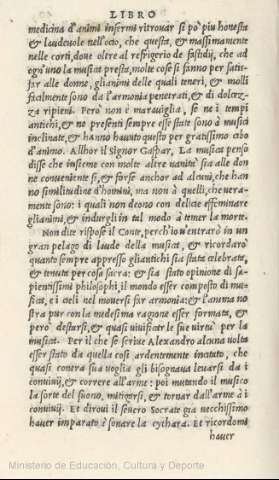 LIBRO
medicina d'animi infermi ritrovar si pò piu honesta
& laudevole nell'ocio, che questa, & massimamente
nelle corti, dove oltre al refrigerio de fastidij, che ad
ogn'uno la musica presta, molte cose si fanno per satis-
far alle donne, gli animi delle quali teneri, & molli
facilmente sono da l'armonia penetrati, & di dolcez-
za ripieni. Però non è maraviglia, se ne i tempi
antichi, & ne presenti sempre esse state sono à musici
inclinate, & hanno havuto questo per gratissimo cibo
d'animo. Allhor il Signor Gaspar, La musica penso
disse che insieme con molte altre vanità sia alle don
ne conveniente si, & forse anchor ad alcuni, che han
no similitudine d'homini, ma non à quelli, che vera-
mente sono: i quali non deono con delicie effeminare
gli animi, & indurgli in tal modo à temer la morte.
Non dite rispose il Conte, perch'io v'entrarò in un
gran pelago di laude della musica, & ricordarò
quanto sempre appresso gli antichi sia stata celebrata,
& tenuta per cosa sacra: & sia stato opinione di sa-
pientissimi philosophi, il mondo esser composto di mu-
sica, et i cieli nel moversi far armonia: & l'anima no
stra pur con la medesima ragione esser formata, &
però destarsi, & quasi vivificar le sue virtù per la
musica. Per il che si scrive Alexandro alcuna volta
esser stato da quella così ardentemente incitato, che
quasi contra sua voglia gli bisognava levarsi da i
convivij, & correre all'arme: poi mutando il musico
la sorte del suono, mitigarsi, & tornar dall'arme à i
convivij. Et dirovi il severo Socrate già vecchissimo
haver imparato à sonare la cythara. Et ricordomi
haver
Ministerio de Educación, Cultura y Deporte